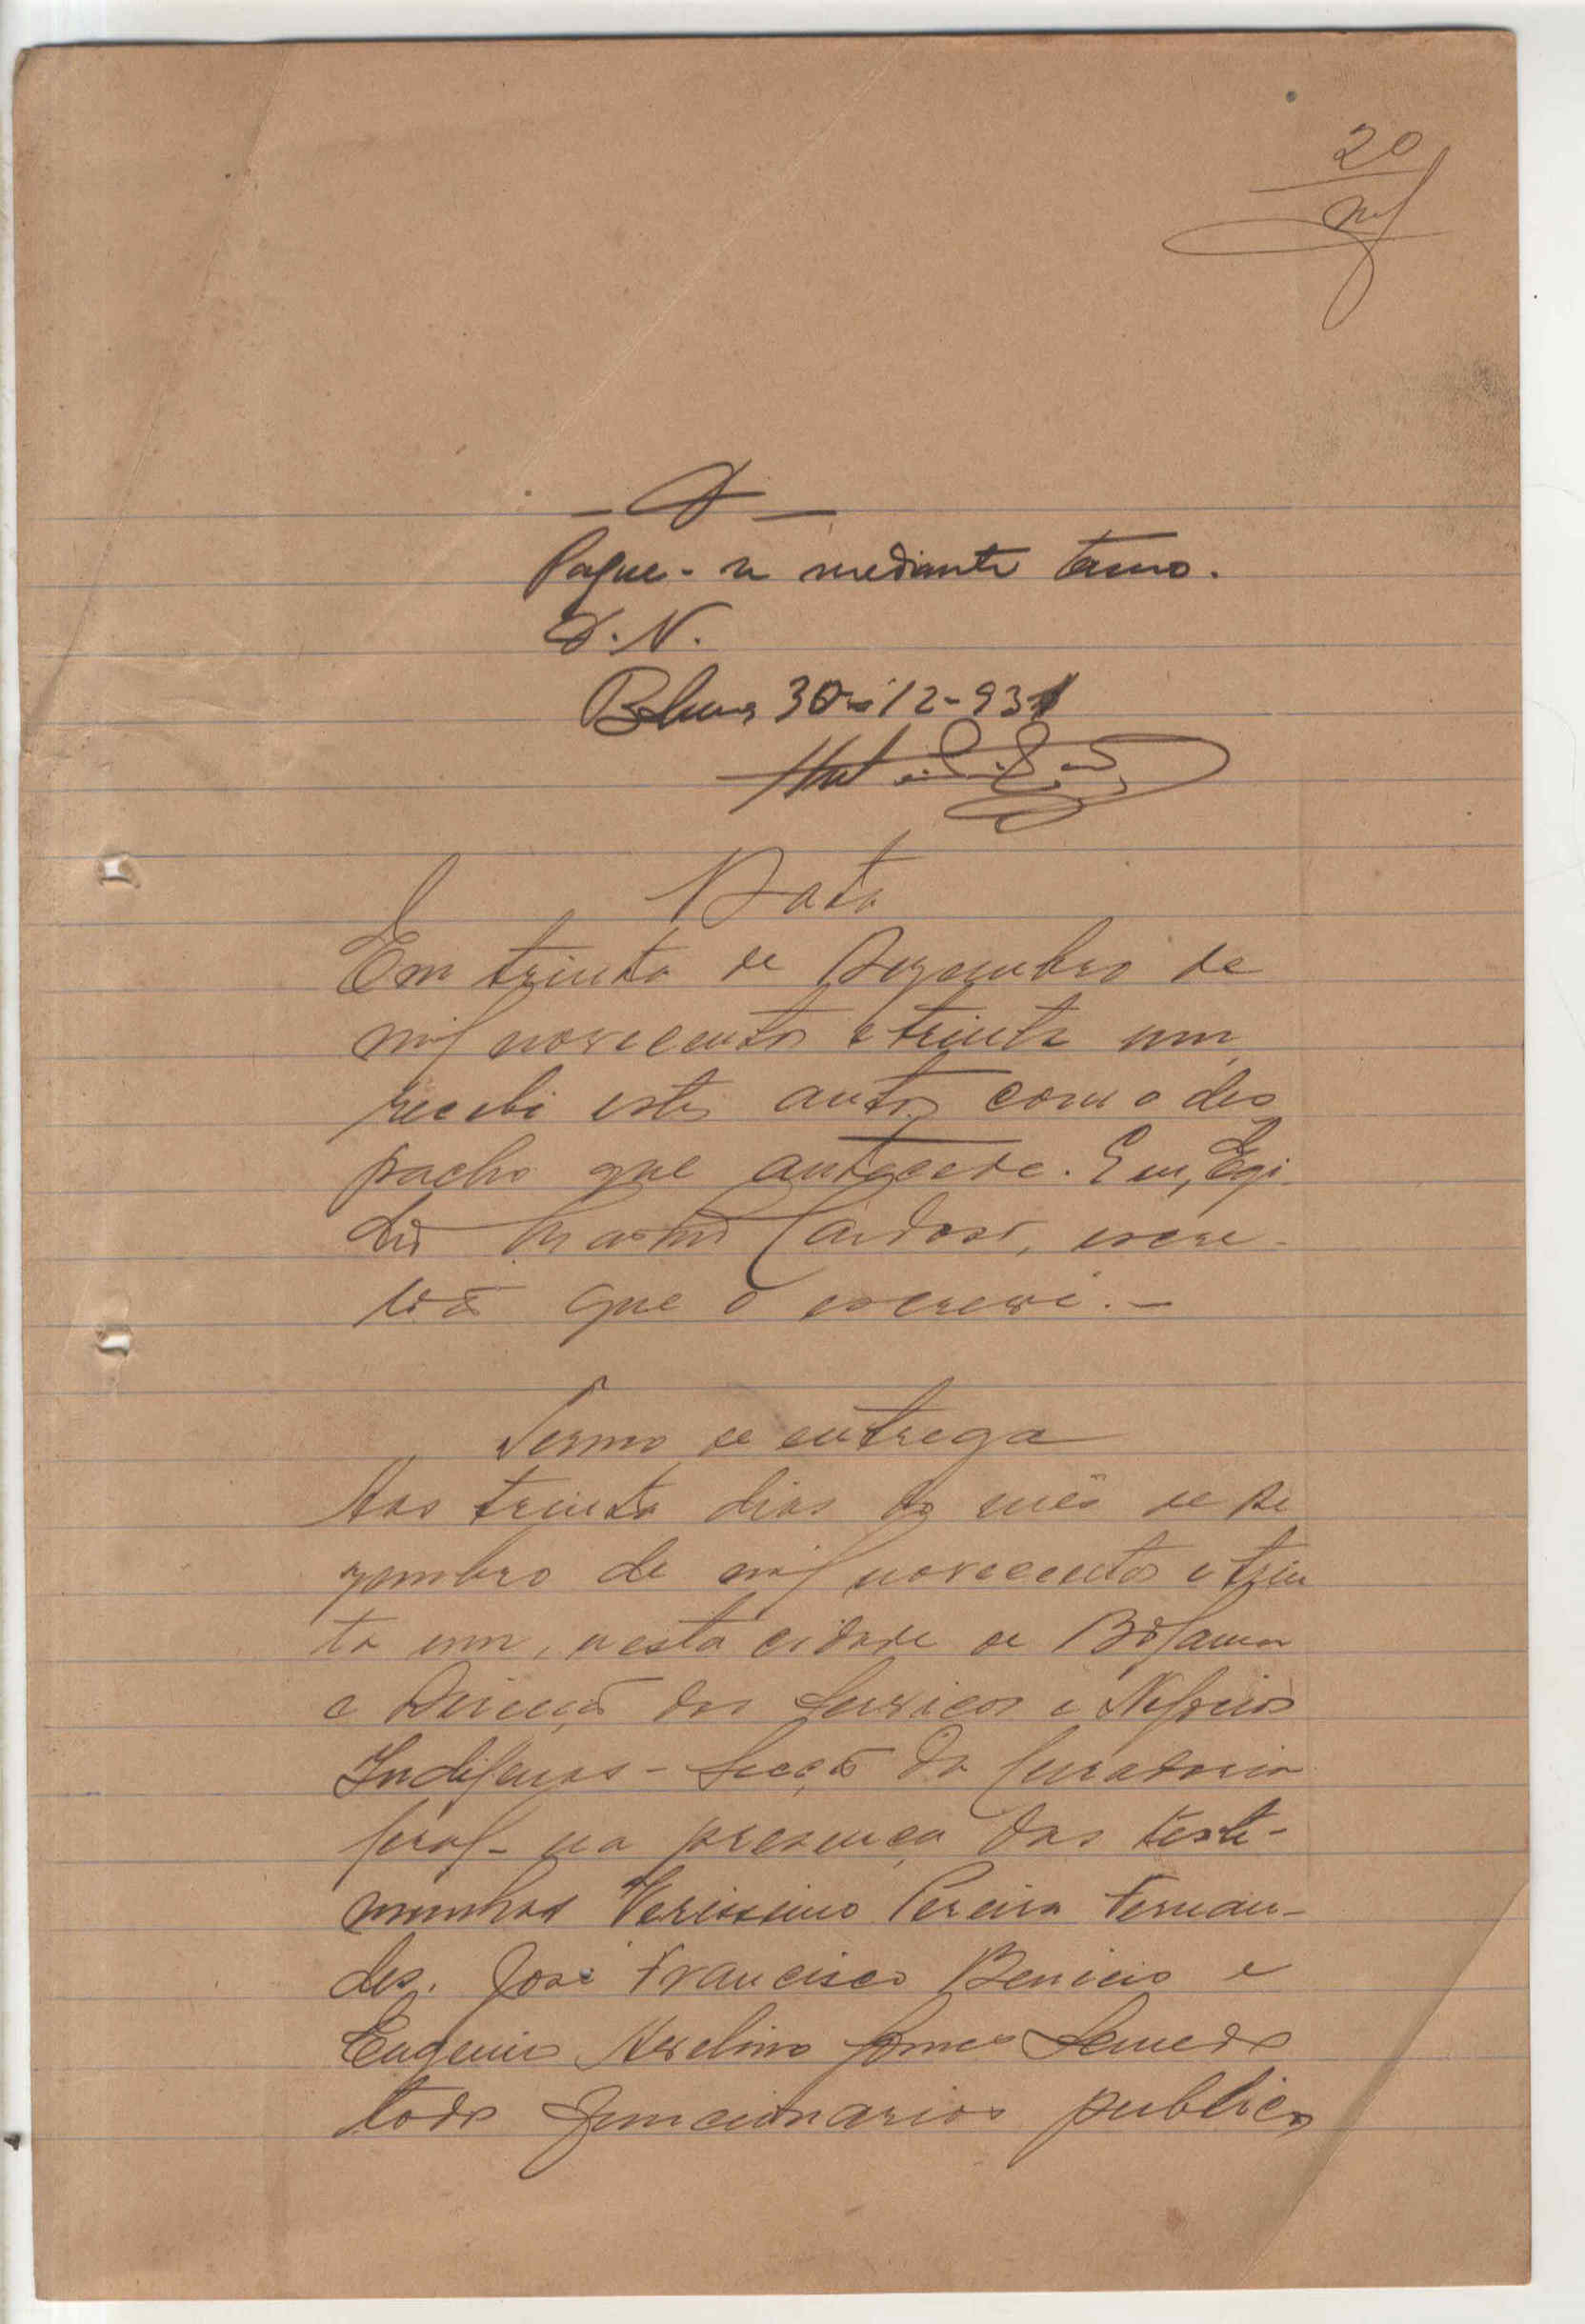 20
D
Pague-se mediante termo.
D. N.
Bolama 30-12-931
Data
Em trinta de Dezembro de
mil novecentos e trinta um,
recebi estes autos com o des
pacho que antecede. Eu, Egi-
dio Cardoso, escri-
vão que o escrevi.-
Termo de entrega
Aos trinta dias do mês de De
zembro de mil novecentos e trin
ta um, nesta cidade de Bolama
e Direcção dos Serviços e Negocios
Indigenas - Secção da Curadoria
Geral - na presença das teste-
munhas Verissimo Pereira Fernan-
des, José Francisco Benicio e
Eugenio Avelino Gomes Semedo
todos funcionarios publicos